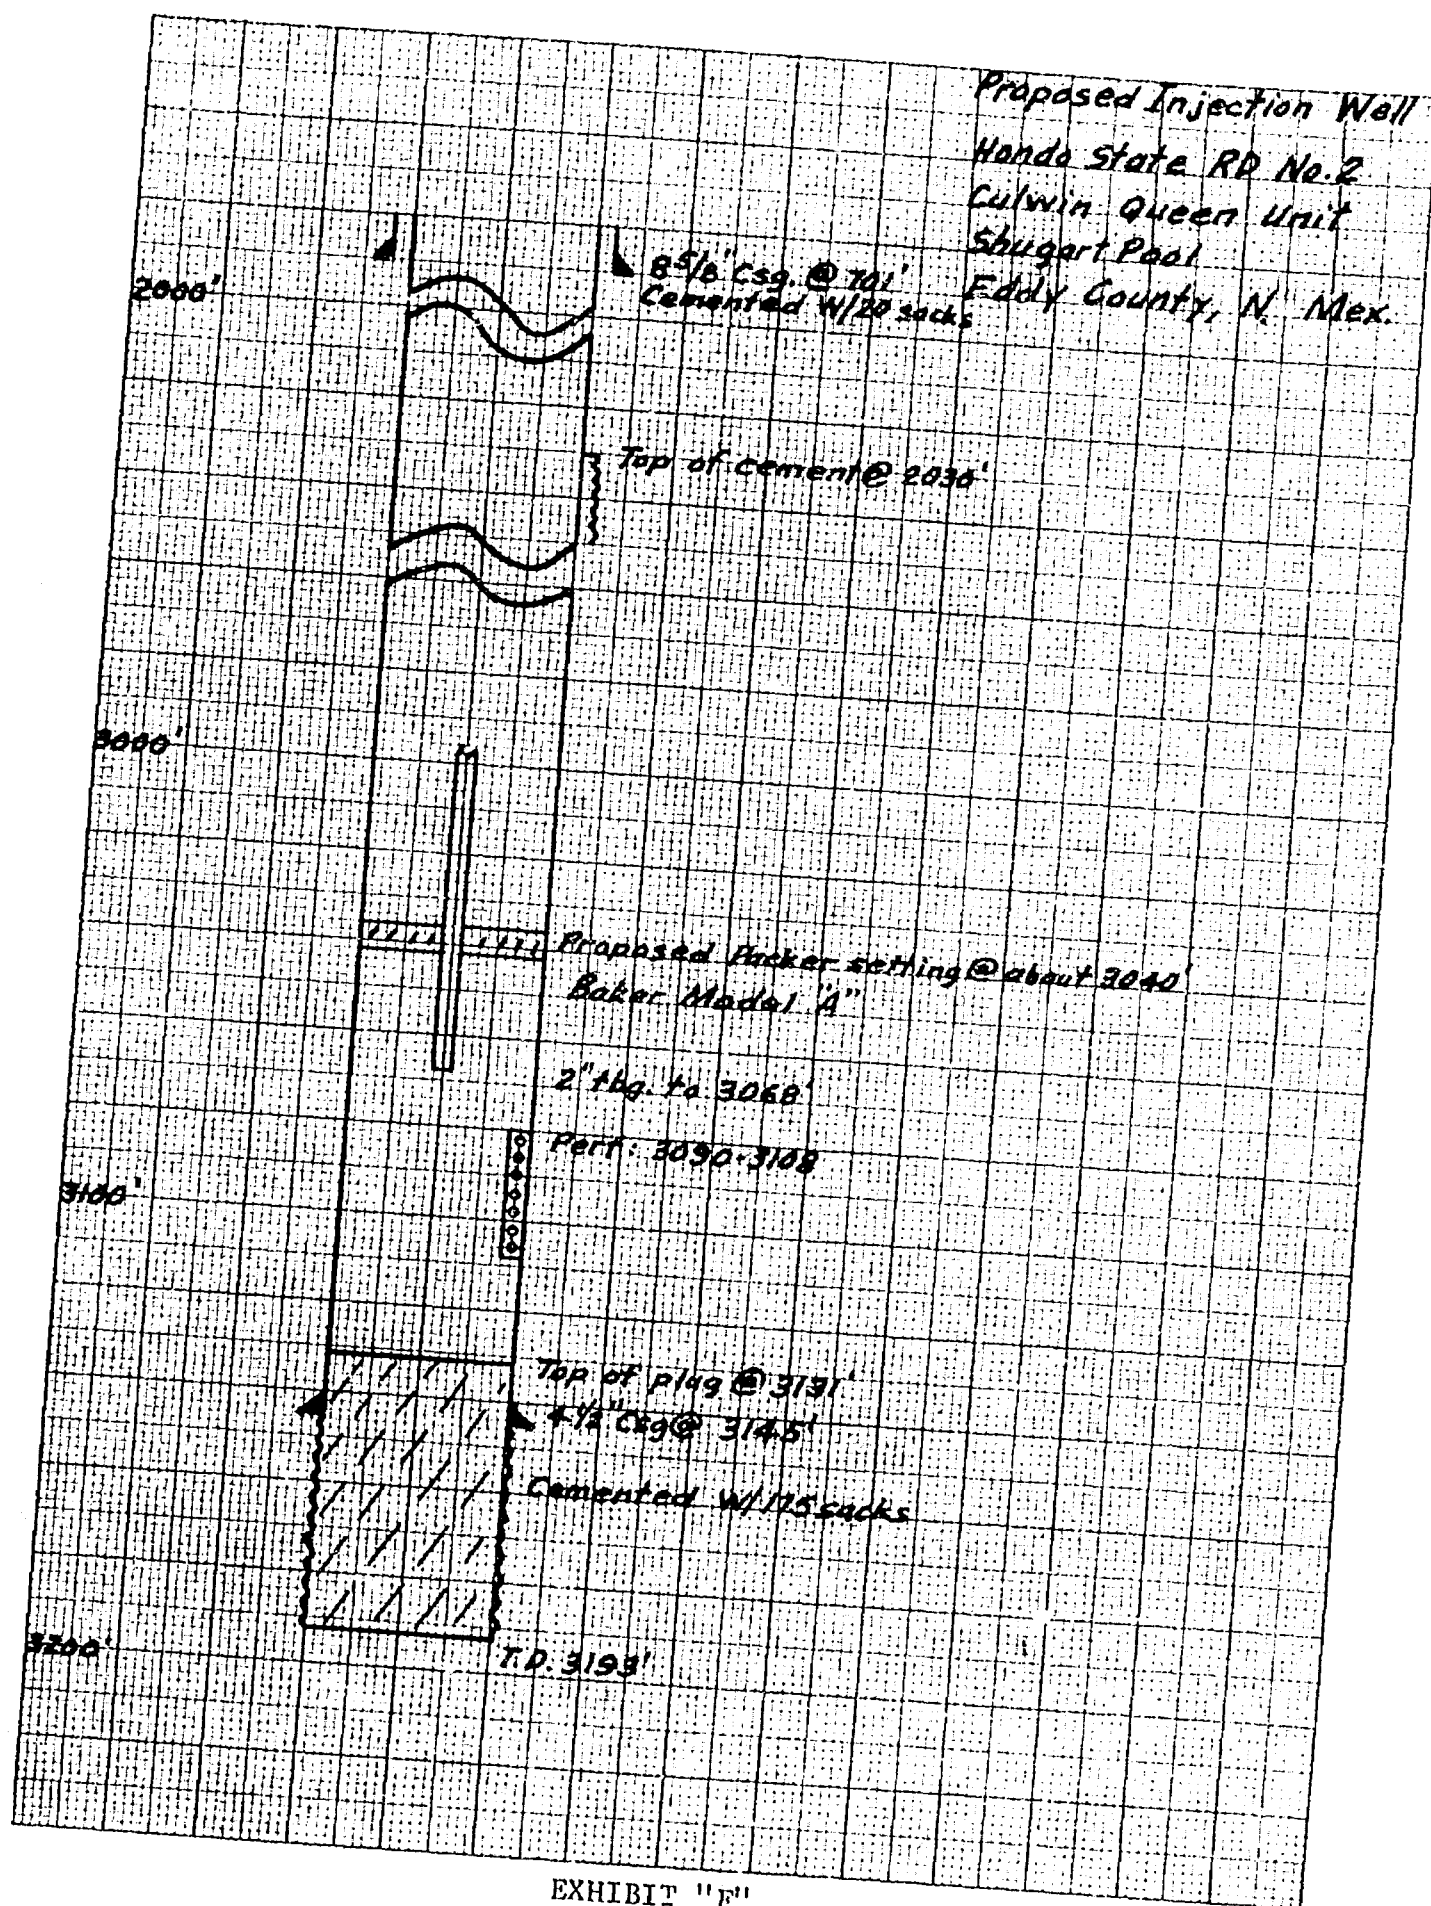 Proposed Injection Well
Hondo State RD No. 2
Culwin Queen Unit
Shugart Pool
Eddy County, N. Mex.
8 5/8" Csg. @ 701'
Cemented W/20 sacks
2000'
Top of cement @ 2030'
3000'
Proposed Packer setting @ about 3040'
Baker Model "A"
2" tbg. to 3068'
Perf: 3090-3108
3100'
Top of plug @ 3131'
4 1/2" Csg @ 3145'
Cemented W/175 sacks
3200'
T.D. 3193'
EXHIBIT